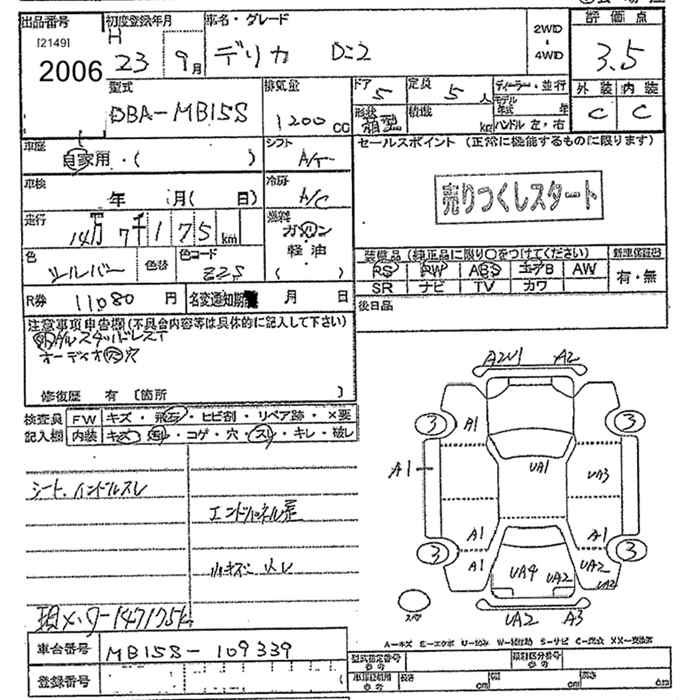 出品番号 初度登録年月 車名・グレード 評価点
[2149] H 2WD
2006 23 9月 デリカ D:2 4WD 3.5
型式 排気量 ドア 定員 ディーラー・並行 外装 内装
DBA-MB15S 1200CC 5 5人 モデル年式 年 C C
形状 箱型 積載 kg ハンドル 左・右
車歴 シフト セールスポイント (正常に機能するものに限ります)
自家用・( ) A/T
車検 冷房 売りつくしスタート
年 月( 日) A/C
走行 燃料
14万7千175km ガソリン
軽油
色 色替 色コード 装備品 (純正品に限り○をつけてください) 新車保証書
シルバー Z2S ( ) PS PW ABS エアB AW 有・無
SR ナビ TV カワ
R券 11080円 名変通知期限 月 日 後日品
注意事項申告欄(不具合内容等は具体的に記入して下さい)
オーディオ穴
修復歴 有 〔箇所 〕
検査員 FW キズ・飛石・ヒビ割・リペア跡・×要
記入欄 内装 キズ・汚れ・コゲ・穴・スレ・キレ・破レ
A2U1 A2
3 3
A1
UA1
A1 UA3
A1 A1
3 3
A1 UA4 UA2 UA2
UA2
スペア
UA2 A3
シート、ハンドルスレ
現メーター147175k
A=キズ E=エクボ U=凹み W=補修跡 S=サビ C=腐食 XX=交換済
車台番号 MB15S-109339
登録番号
型式指定番号 類別区分番号
車両寸法 長さ cm 幅 cm 高さ cm